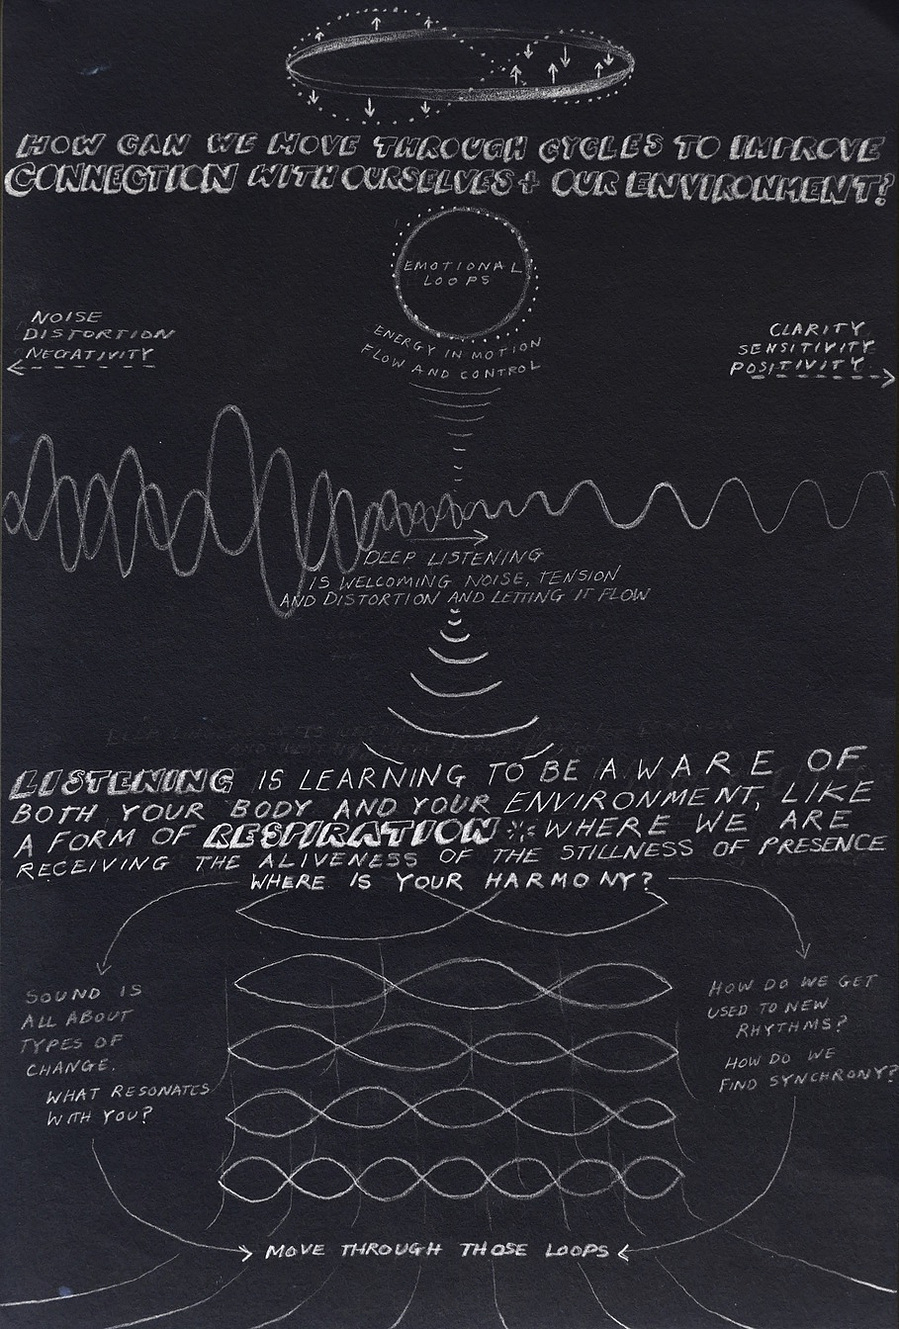 HOW CAN WE MOVE THROUGH CYCLES TO IMPROVE
CONNECTION WITH OURSELVES + OUR ENVIRONMENT?
EMOTIONAL
LOOPS
ENERGY IN MOTION
FLOW AND CONTROL
NOISE
DISTORTION
NEGATIVITY
CLARITY
SENSITIVITY
POSITIVITY
DEEP LISTENING
IS WELCOMING NOISE, TENSION
AND DISTORTION AND LETTING IT FLOW
LISTENING IS LEARNING TO BE AWARE OF
BOTH YOUR BODY AND YOUR ENVIRONMENT, LIKE
A FORM OF RESPIRATION WHERE WE ARE
RECEIVING THE ALIVENESS OF THE STILLNESS OF PRESENCE
WHERE IS YOUR HARMONY?
SOUND IS
ALL ABOUT
TYPES OF
CHANGE.
WHAT RESONATES
WITH YOU?
HOW DO WE GET
USED TO NEW
RHYTHMS?
HOW DO WE
FIND SYNCHRONY?
MOVE THROUGH THOSE LOOPS